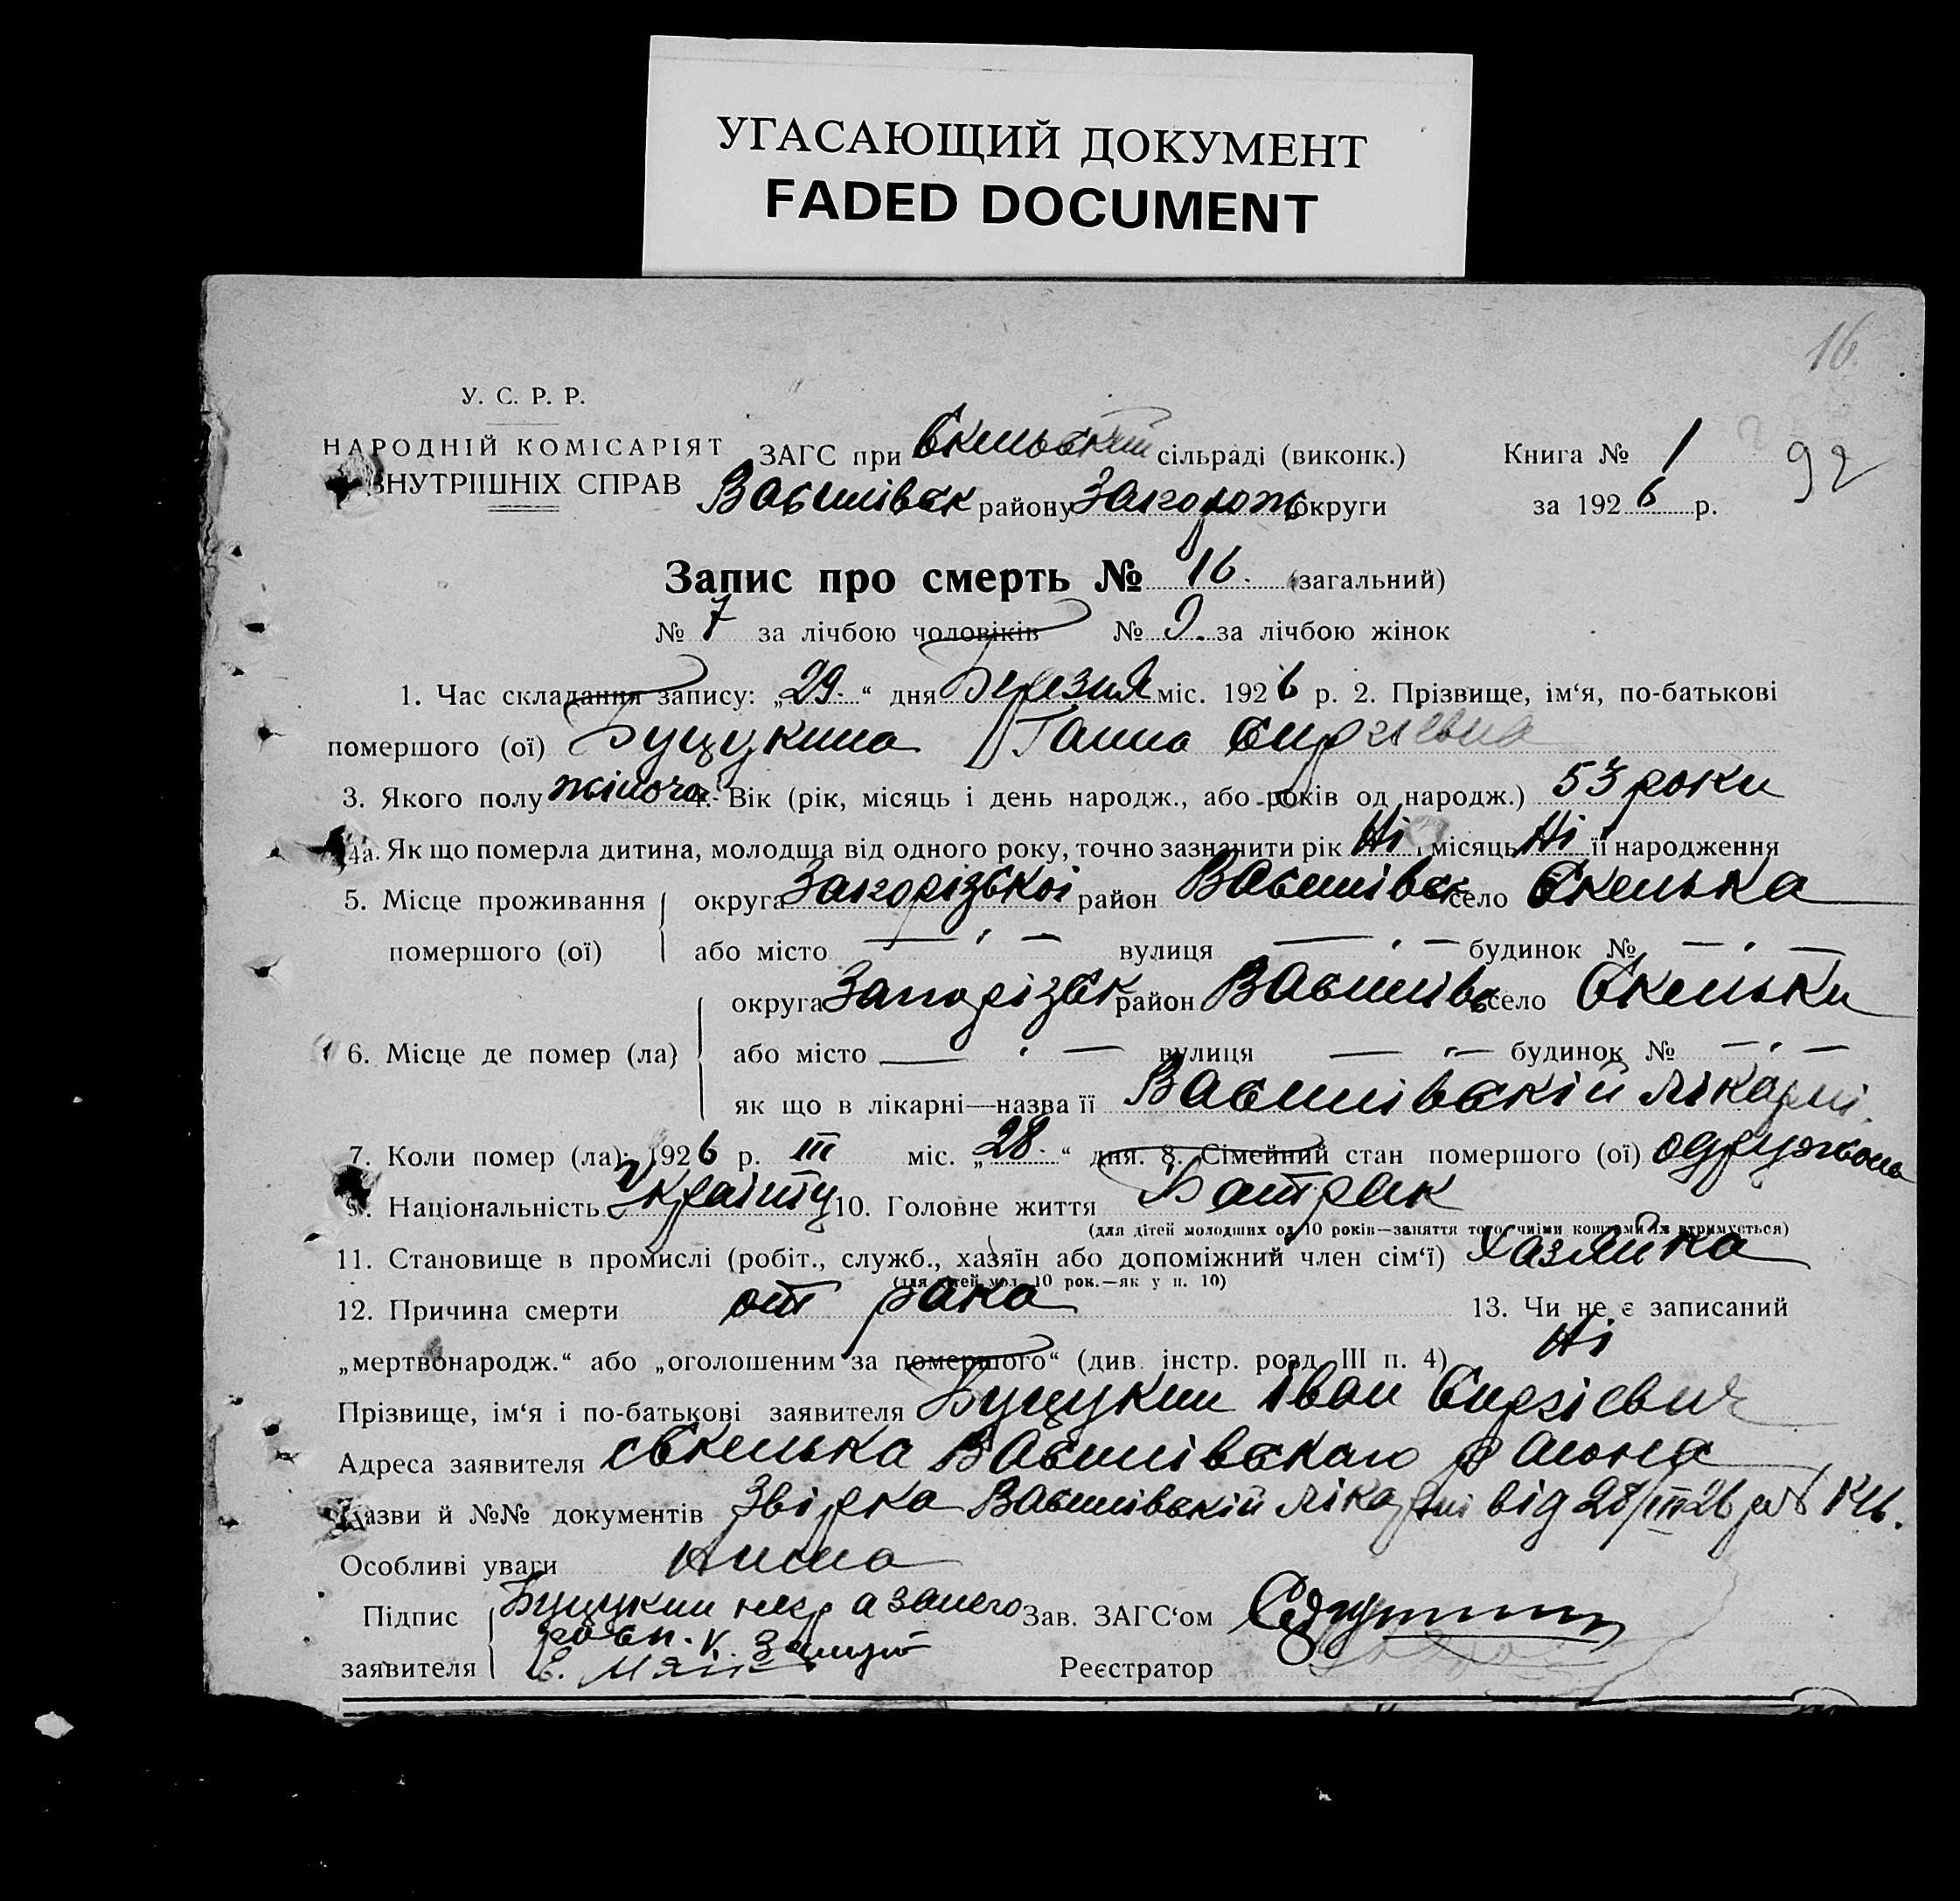 УГАСАЮЩИЙ ДОКУМЕНТ
FADED DOCUMENT
16
У. С. Р. Р.
НАРОДНІЙ КОМІСАРІЯТ ЗАГС при Скельській сільраді (виконк.) Книга № 1 92
ВНУТРІШНІХ СПРАВ Василівск району Запорож округи за 1926 р.
Запис про смерть № 16. (загальний)
№ 7 за лічбою чоловіків № 9. за лічбою жінок
1. Час складання запису: „29.“ дня Березня міс. 1926 р. 2. Прізвище, ім‘я, по-батькові
помершого (ої) Буцукина Ганна Сиргіевна
3. Якого полу жіноча 4. Вік (рік, місяць і день народж., або років од народж.) 53 роки
4а. Як що померла дитина, молодша від одного року, точно зазначити рік Ні і місяць Ні її народження
5. Місце проживання округа Запорізькоі район Василівск село Скелька
помершого (ої) або місто — „ — вулиця — „ — будинок № — „ —
округа Запорізск район Василівс село Скельки
6. Місце де помер (ла) або місто — „ — вулиця — „ — будинок № — „ —
як що в лікарні—назва її Василівскій лікарні.
7. Коли помер (ла): 1926 р. III міс. „28.“ дня. 8. Сімейний стан помершого (ої) одружона
9. Національність Украінц 10. Головне життя Батрак
(для дітей молодших од 10 років—заняття того чиїми коштами їх втримується)
11. Становище в промислі (робіт., служб., хазяїн або допоміжний член сім‘ї) Хазяйка
(для дітей мол. 10 рок.—як у п. 10)
12. Причина смерти от рака 13. Чи не є записаний
„мертвонародж.“ або „оголошеним за помершого“ (див. інстр. розд. III п. 4) Ні
Прізвище, ім‘я і по-батькові заявителя Буцукин Іван Сиргіевич
Адреса заявителя с Скелька Василівскаго району
Назви й №№ документів Звірка Василівскій лікарні від 28/III 26
Особливі уваги Нима
Підпис Буцукин за него Зав. ЗАГС‘ом
заявителя Реєстратор